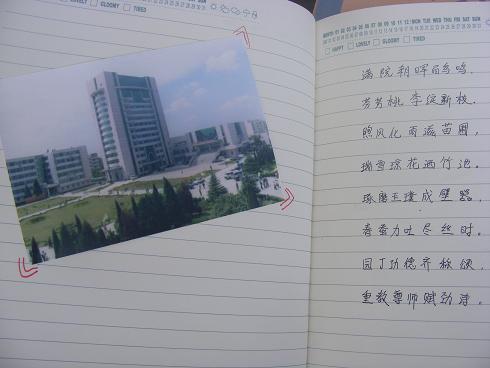 LOVELY GLOOMY TIRED
MONTH 01 02 03 04 05 06 07 08 09 10 11 12 MON TUE WED THU FRI SAT SUN
HAPPY LOVELY GLOOMY TIRED
满院朝晖鸣,
芳芳桃李绽新枝.
煦风化雨滋苗圃,
瑞雪琼花洒竹池.
琢磨玉璞成璧器,
春蚕力吐尽丝时.
园丁功德齐称颂,
重教尊师赋劲诗.